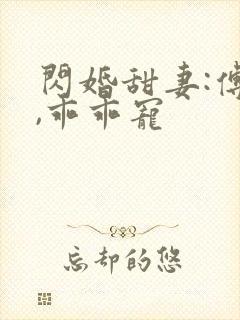 閃婚甜妻:傅
,乖乖寵
忘却的悠